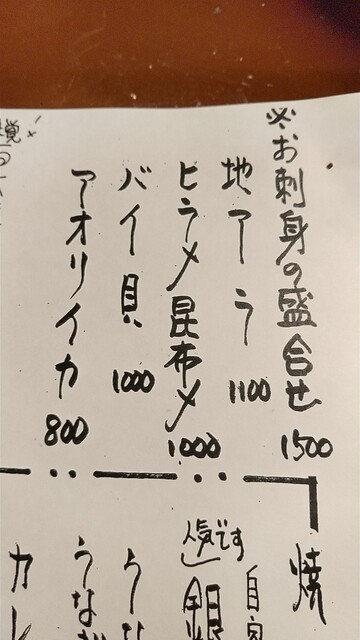 ※お刺身の盛合せ 1500
地アラ 1100
ヒラメ昆布〆 1000
バイ貝 1000
アオリイカ 800
焼
自家
人気です
銀
うな
うなぎ
カレ